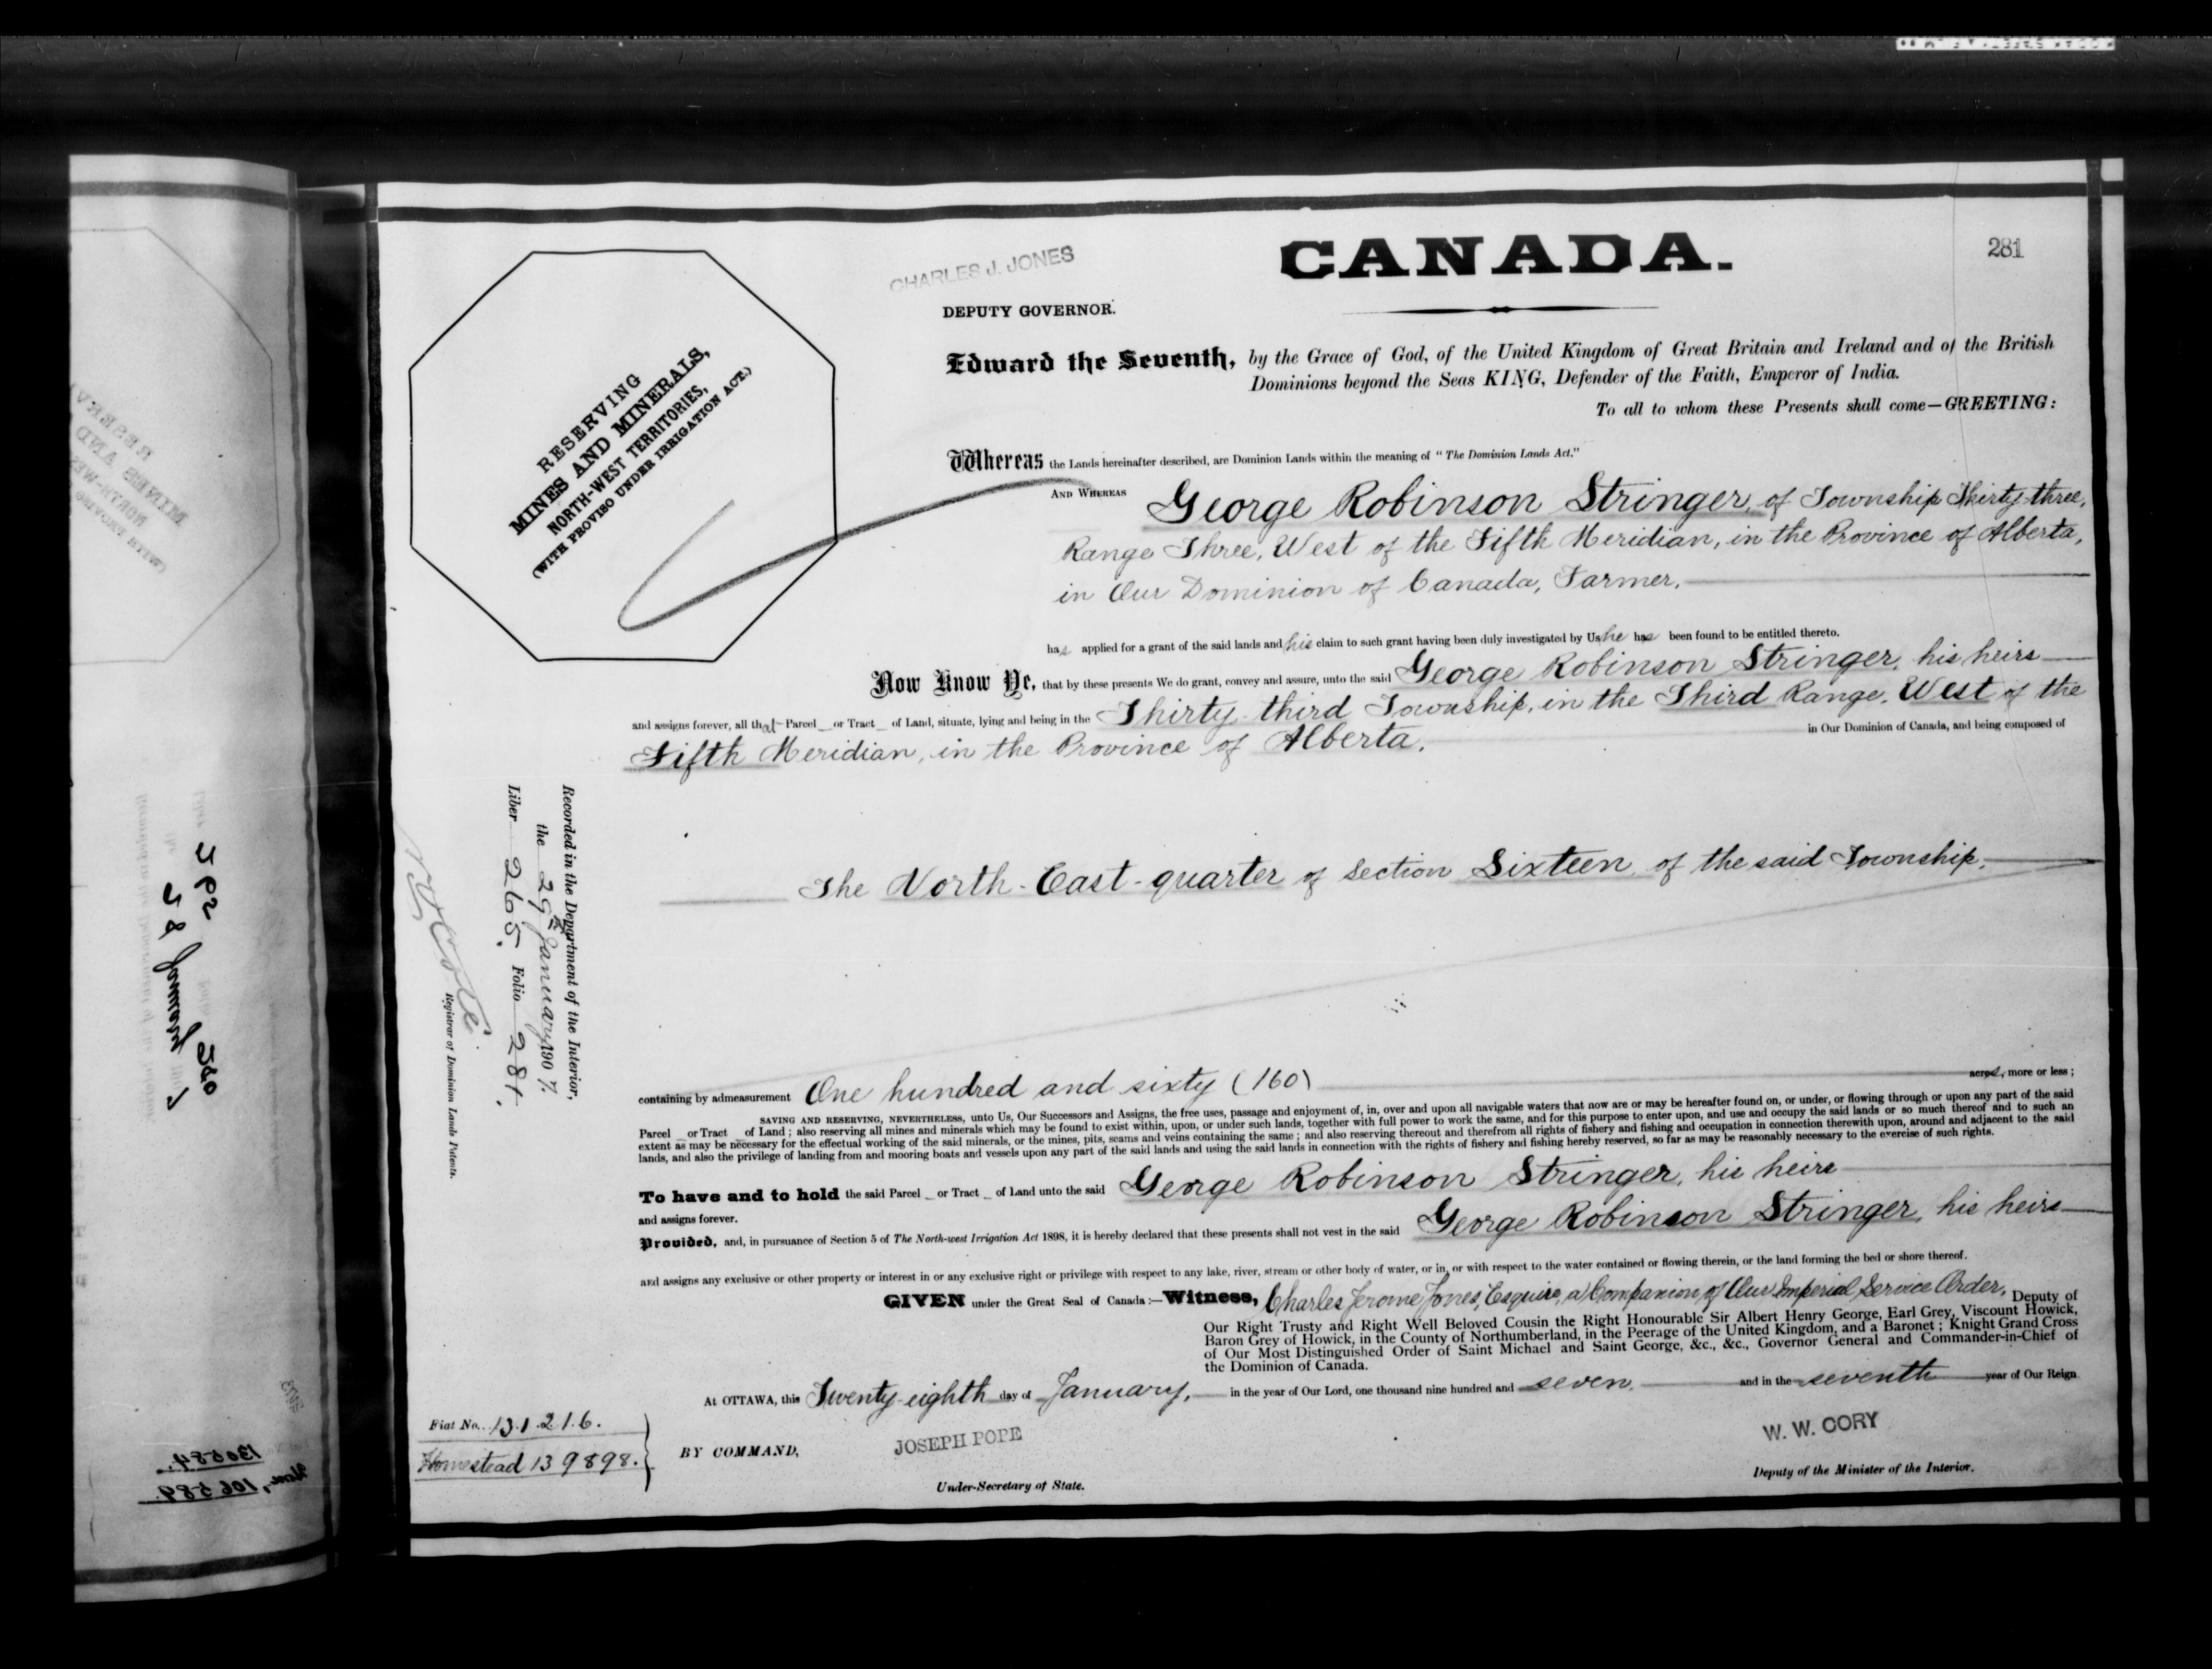 CANADA.
281
CHARLES J. JONES
DEPUTY GOVERNOR.
RESERVING
MINES AND MINERALS,
NORTH-WEST TERRITORIES,
(WITH PROVISO UNDER IRRIGATION ACT.)
Edward the Seventh, by the Grace of God, of the United Kingdom of Great Britain and Ireland and of the British
Dominions beyond the Seas KING, Defender of the Faith, Emperor of India.
To all to whom these Presents shall come—GREETING:
Whereas the Lands hereinafter described, are Dominion Lands within the meaning of "The Dominion Lands Act."
AND WHEREAS George Robinson Stringer, of Township Thirty-three,
Range Three, West of the Fifth Meridian, in the Province of Alberta,
in Our Dominion of Canada, Farmer.
has applied for a grant of the said lands and his claim to such grant having been duly investigated by Us he has been found to be entitled thereto.
Now Know Ye, that by these presents We do grant, convey and assure, unto the said George Robinson Stringer, his heirs
and assigns forever, all that Parcel or Tract of Land, situate, lying and being in the Thirty-third Township, in the Third Range, West of the
Fifth Meridian, in the Province of Alberta. in Our Dominion of Canada, and being composed of
The North-East-quarter of Section Sixteen of the said Township,
containing by admeasurement One hundred and sixty (160) acres, more or less;
SAVING AND RESERVING, NEVERTHELESS, unto Us, Our Successors and Assigns, the free uses, passage and enjoyment of, in, over and upon all navigable waters that now are or may be hereafter found on, or under, or flowing through or upon any part of the said
Parcel or Tract of Land; also reserving all mines and minerals which may be found to exist within, upon, or under such lands, together with full power to work the same, and for this purpose to enter upon, and use and occupy the said lands or so much thereof and to such an
extent as may be necessary for the effectual working of the said minerals, or the mines, pits, seams and veins containing the same; and also reserving thereout and therefrom all rights of fishery and fishing and occupation in connection therewith upon, around and adjacent to the said
lands, and also the privilege of landing from and mooring boats and vessels upon any part of the said lands and using the said lands in connection with the rights of fishery and fishing hereby reserved, so far as may be reasonably necessary to the exercise of such rights.
To have and to hold the said Parcel or Tract of Land unto the said George Robinson Stringer, his heirs
and assigns forever.
Provided, and, in pursuance of Section 5 of The North-west Irrigation Act 1898, it is hereby declared that these presents shall not vest in the said George Robinson Stringer, his heirs
and assigns any exclusive or other property or interest in or any exclusive right or privilege with respect to any lake, river, stream or other body of water, or in, or with respect to the water contained or flowing therein, or the land forming the bed or shore thereof.
GIVEN under the Great Seal of Canada:—Witness, Charles Jerome Jones, Esquire, a Companion of Our Imperial Service Order, Deputy of
Our Right Trusty and Right Well Beloved Cousin the Right Honourable Sir Albert Henry George, Earl Grey, Viscount Howick,
Baron Grey of Howick, in the County of Northumberland, in the Peerage of the United Kingdom, and a Baronet; Knight Grand Cross
of Our Most Distinguished Order of Saint Michael and Saint George, &c., &c., Governor General and Commander-in-Chief of
the Dominion of Canada.
At OTTAWA, this Twenty-eighth day of January, in the year of Our Lord, one thousand nine hundred and seven. and in the seventh year of Our Reign
BY COMMAND,
JOSEPH POPE
Under-Secretary of State.
W. W. CORY
Deputy of the Minister of the Interior.
Fiat No. 131216.
Homestead 139898.
Recorded in the Department of the Interior,
the 29th January 1907.
Liber 265. Folio 281.
Registrar of Dominion Lands Patents.